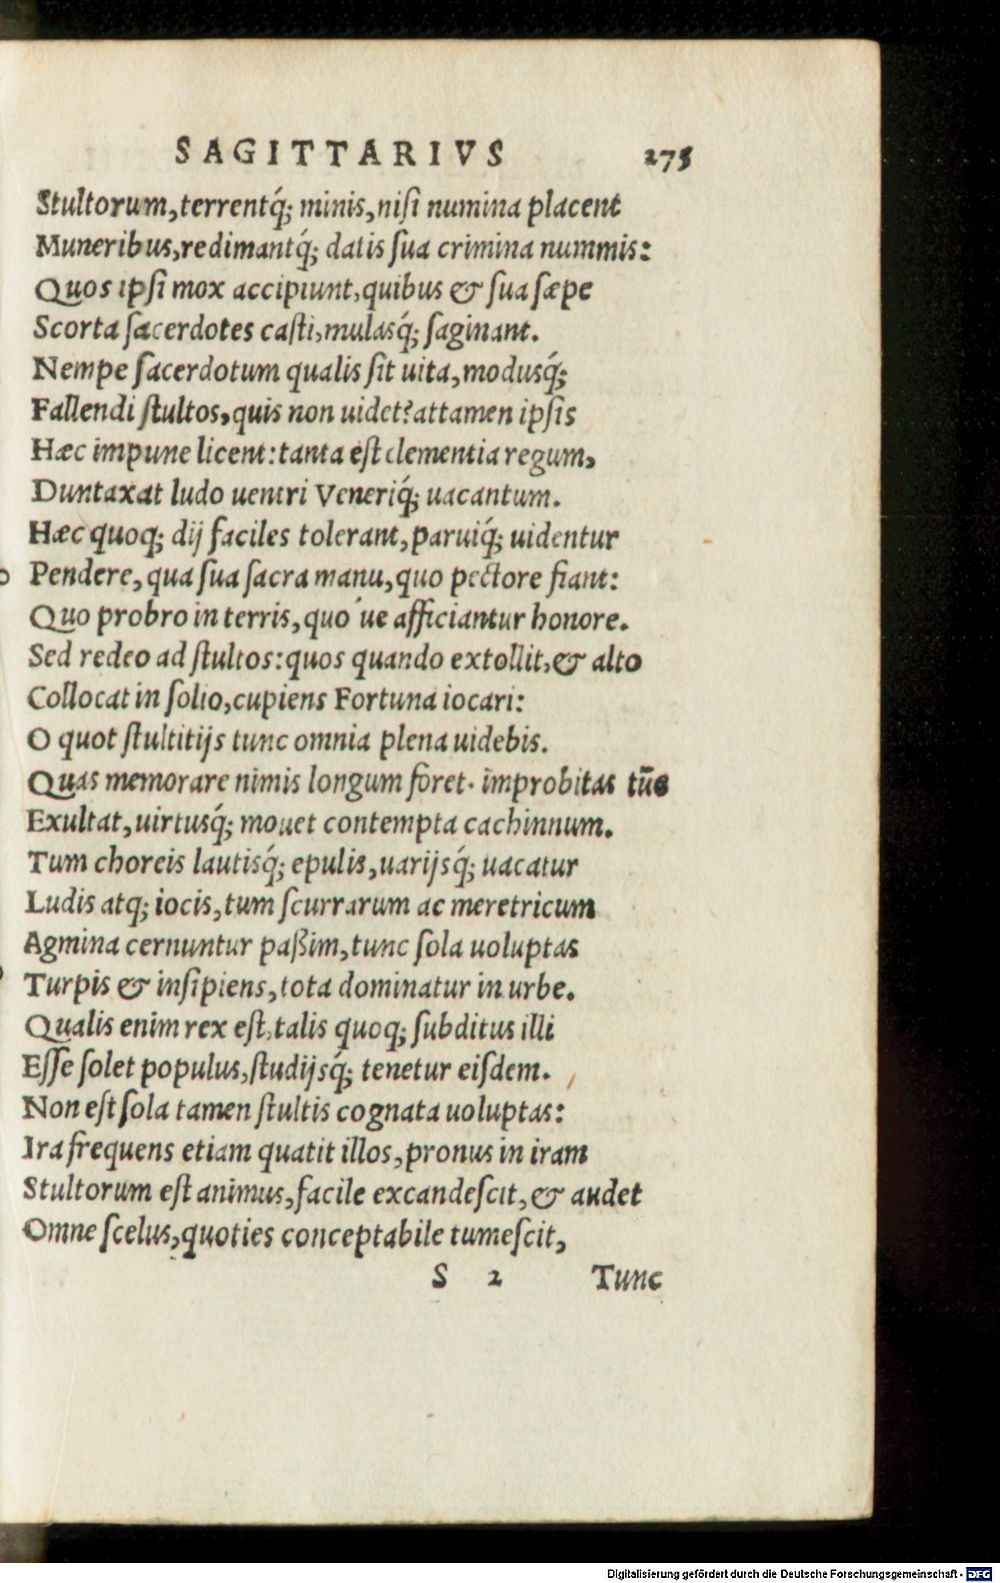 SAGITTARIVS 275
Stultorum,terrentq́; minis,niſi numina placent
Muneribus,redimantq́; datis ſua crimina nummis:
Quos ipſi mox accipiunt,quibus & ſua ſæpe
Scorta ſacerdotes caſti,mulasq́; ſaginant.
Nempe ſacerdotum qualis ſit uita,modusq́;
Fallendi ſtultos,quis non uidet?attamen ipſis
Hæc impune licent:tanta eſt clementia regum,
Duntaxat ludo uentri Veneriq́; uacantum.
Hæc quoq; dij faciles tolerant,paruiq́; uidentur
Pendere,qua ſua ſacra manu,quo pectore fiant:
Quo probro in terris,quo ́ue afficiantur honore.
Sed redeo ad ſtultos:quos quando extollit,& alto
Collocat in ſolio,cupiens Fortuna iocari:
O quot ſtultitijs tunc omnia plena uidebis.
Quas memorare nimis longum foret. improbitas tūc
Exultat,uirtusq́; mouet contempta cachinnum.
Tum choreis lautisq́; epulis,uarijsq́; uacatur
Ludis atq; iocis,tum ſcurrarum ac meretricum
Agmina cernuntur paßim,tunc ſola uoluptas
Turpis & inſipiens,tota dominatur in urbe.
Qualis enim rex eſt,talis quoq; ſubditus illi
Eſſe ſolet populus,ſtudijsq́; tenetur eiſdem.
Non eſt ſola tamen ſtultis cognata uoluptas:
Ira frequens etiam quatit illos,pronus in iram
Stultorum eſt animus,facile excandeſcit,& audet
Omne ſcelus,quoties concepta bile tumeſcit,
S 2 Tunc
Digitalisierung gefördert durch die Deutsche Forschungsgemeinschaft - DFG